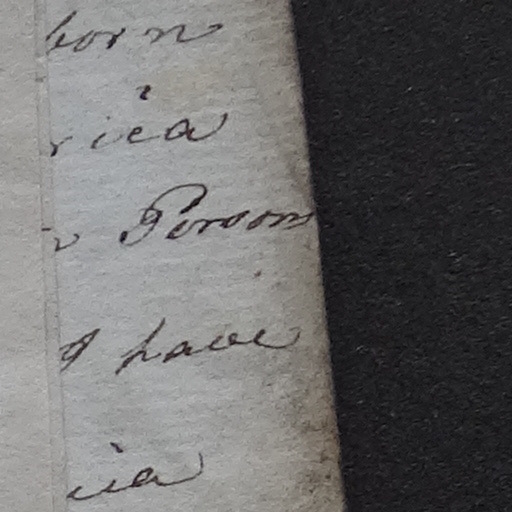 born
rica
Persons
I have
ica